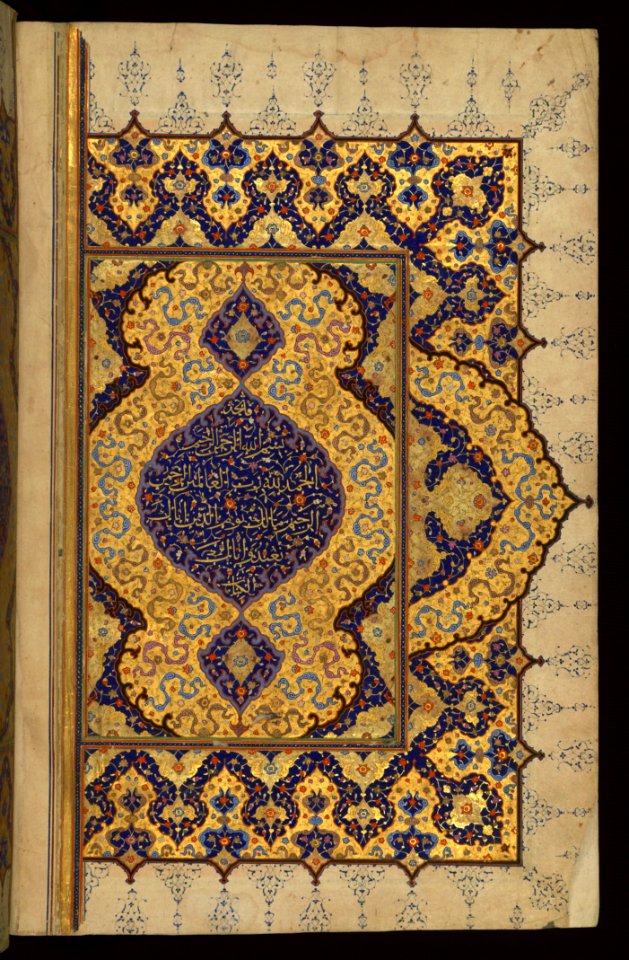 فاتحة
بسم الله الرحمن الرحيم
الحمد لله رب العالمين الرحمن
الرحيم مالك يوم الدين اياك
نعبد و اياك
الكتاب